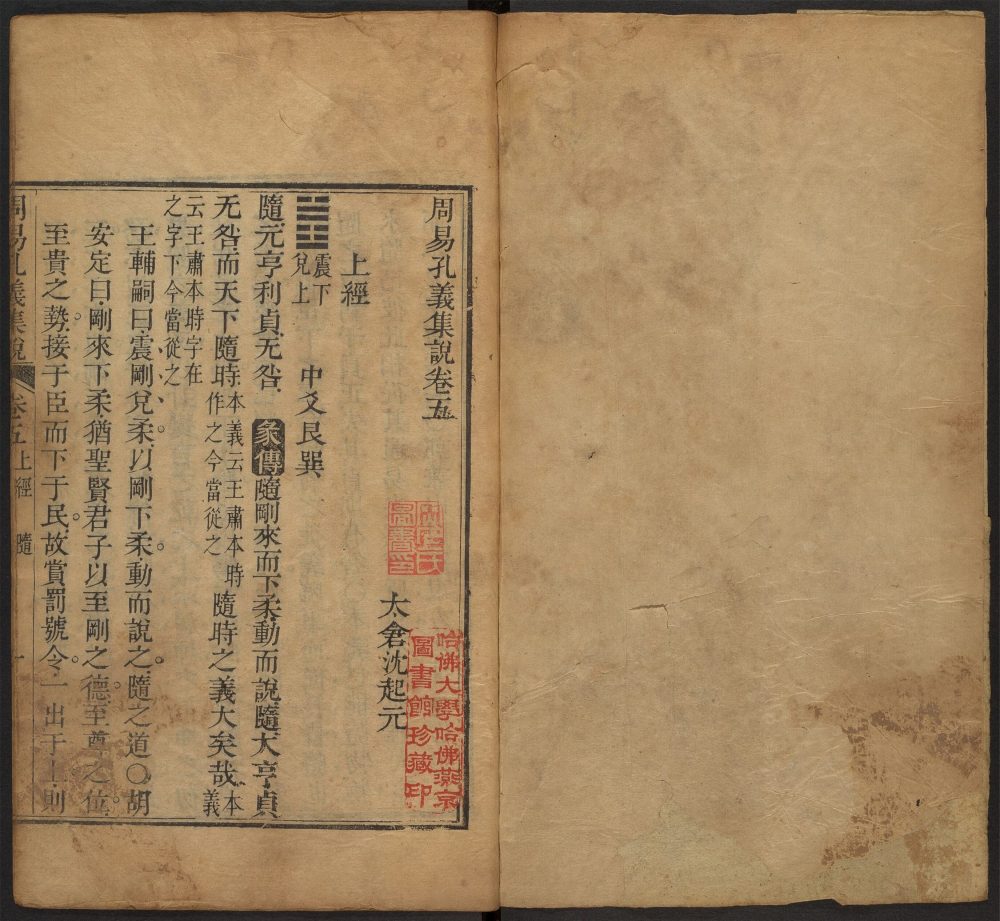 周易孔義集說卷五
太倉沈起元
哈佛大學哈佛燕京
圖書館珍藏印
上經
震下
兌上
中爻艮巽
隨元亨利貞无咎 彖傳隨剛來而下柔動而說隨大亨貞
无咎而天下隨時本義云王肅本時
作之今當從之
隨時之義大矣哉本
義
云王肅本時字在
之字下今當從之
王輔嗣曰震剛兌柔以剛下柔動而說之隨之道〇胡
安定曰剛來下柔猶聖賢君子以至剛之德至尊之位
至貴之勢接于臣而下于民故賞罰號令一出于上則
周易孔義集說 卷五 上經 隨 一